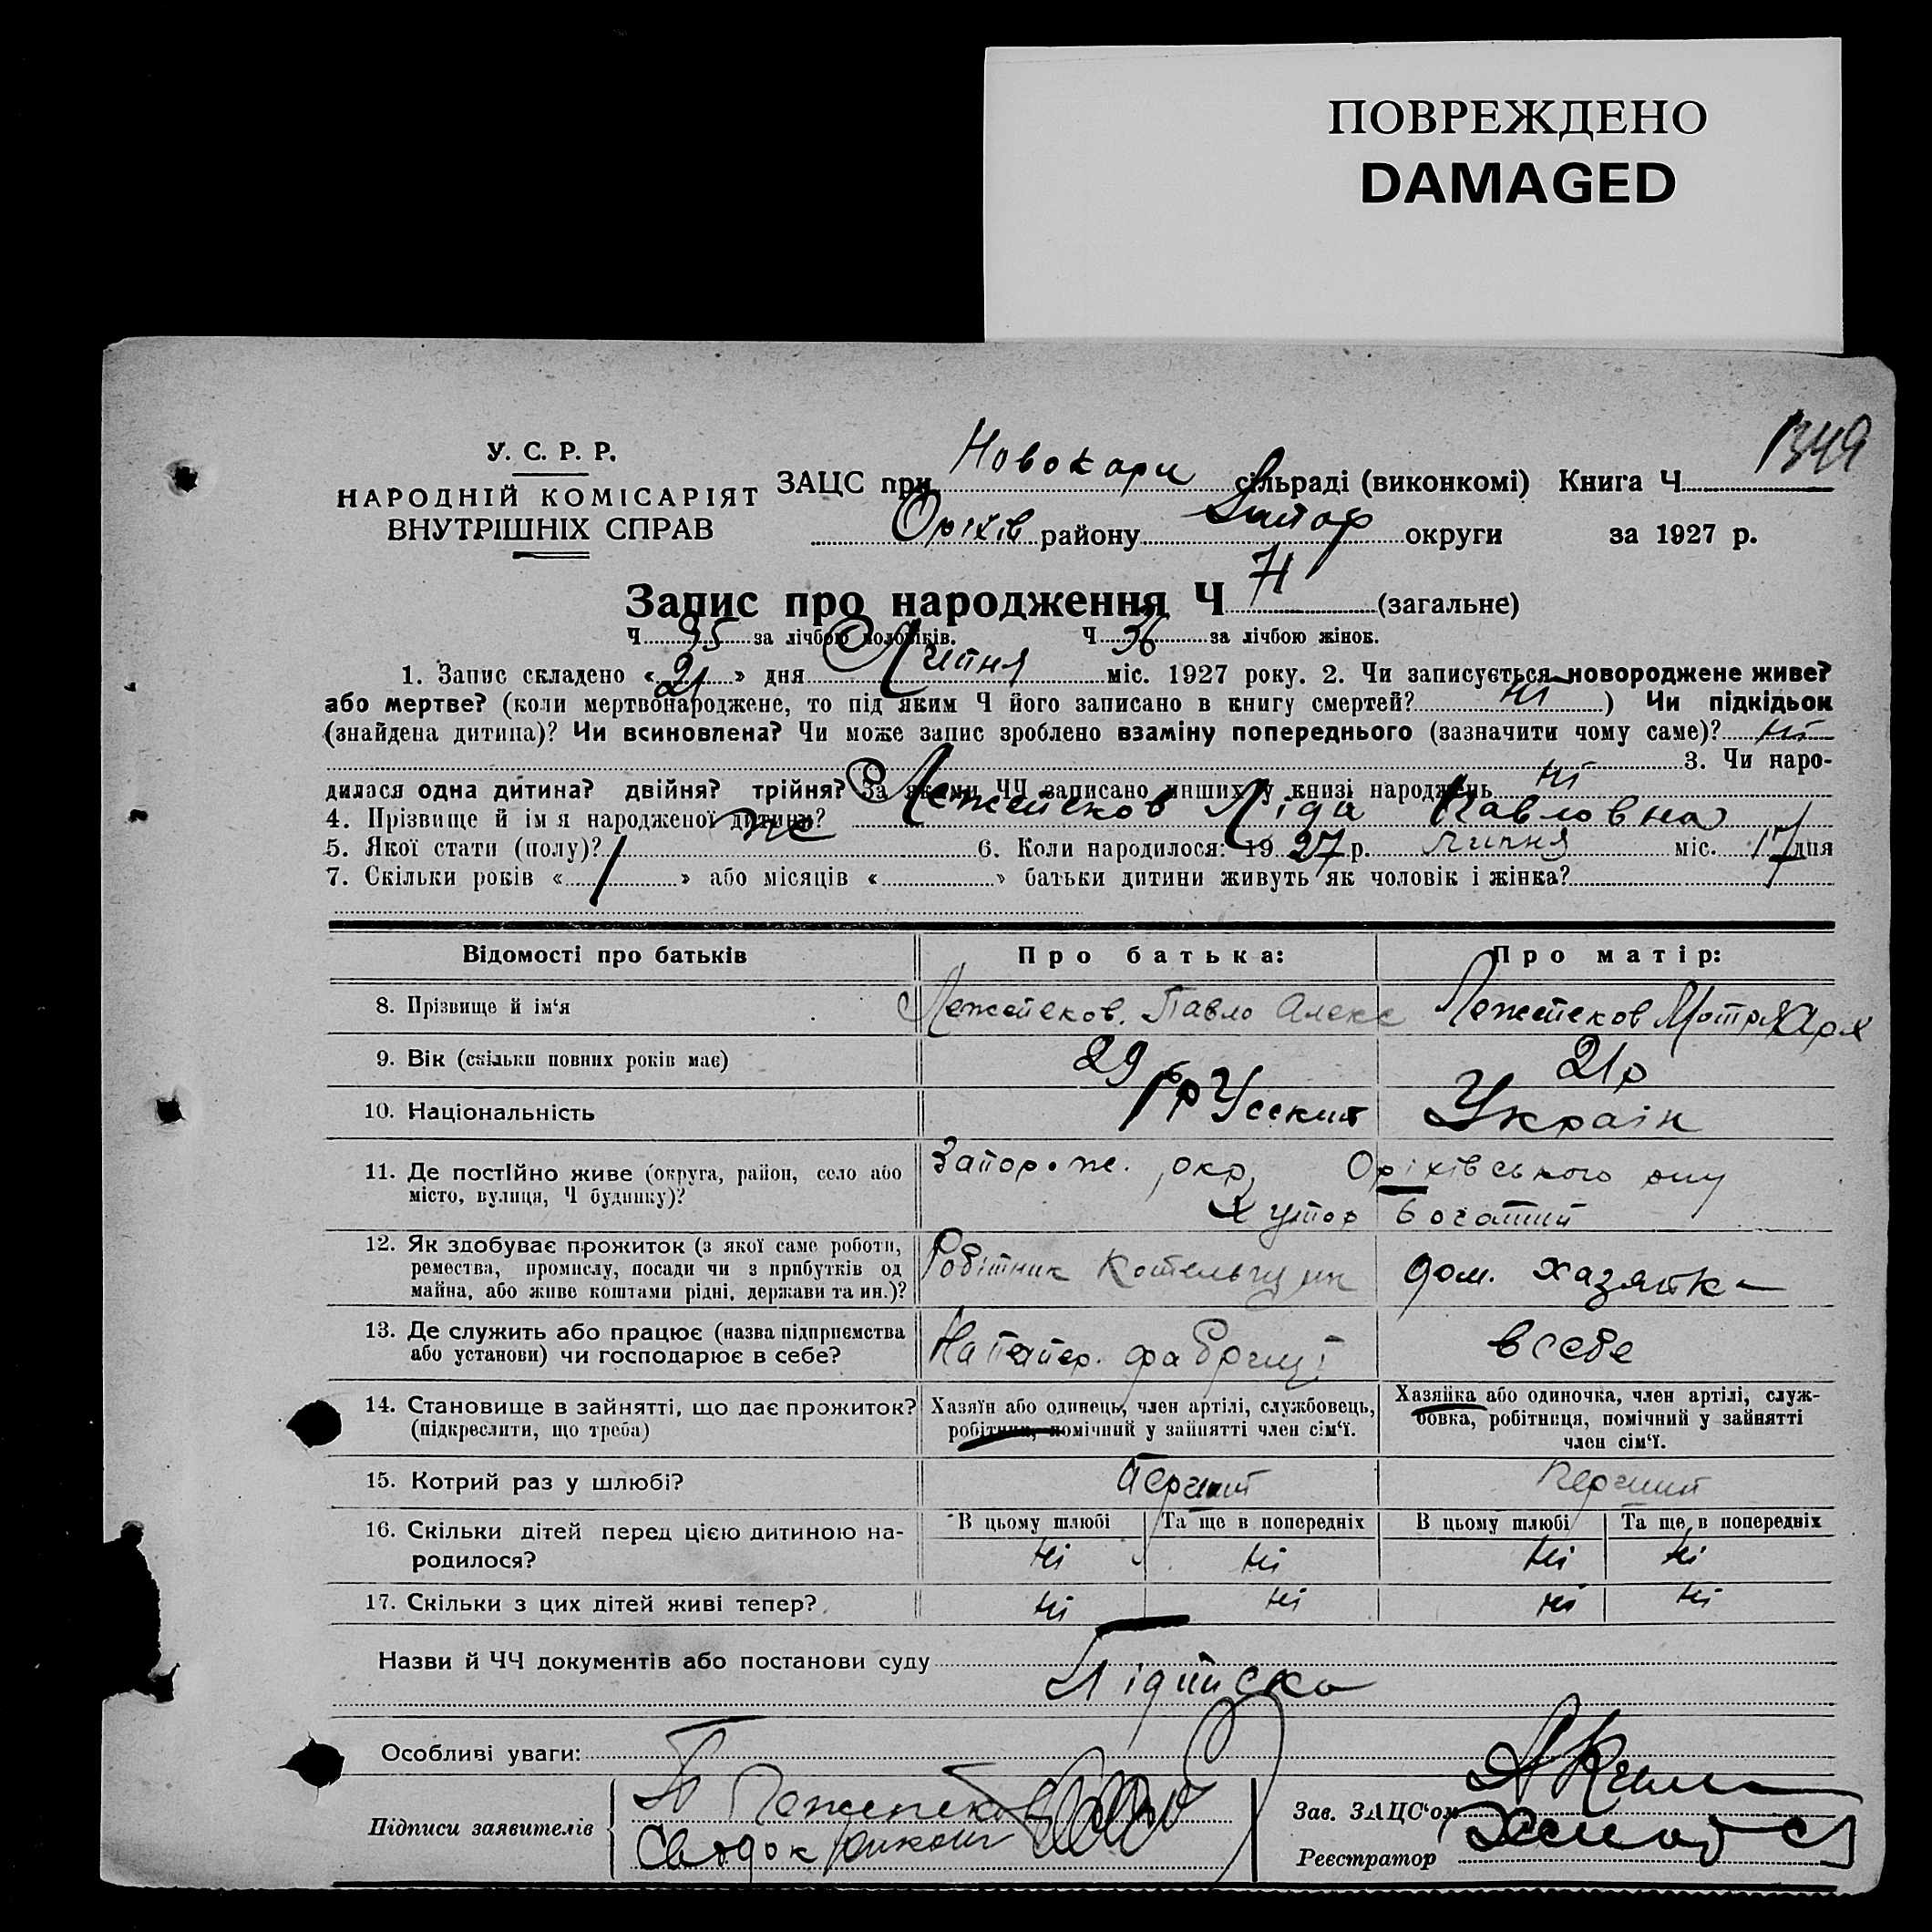 ПОВРЕЖДЕНО
DAMAGED
1349
У. С. Р. Р.
НАРОДНІЙ КОМІСАРІЯТ
ВНУТРІШНІХ СПРАВ
ЗАЦС при Новокари сільраді (виконкомі) Книга Ч
Оріхів району Запор округи за 1927 р.
Запис про народження Ч 71 (загальне)
Ч 35 за лічбою чоловіків. Ч 36 за лічбою жінок.
1. Запис складено « 21 » дня Липня міс. 1927 року. 2. Чи записується новороджене живе?
або мертве? (коли мертвонароджене, то під яким Ч його записано в книгу смертей? ні ) Чи підкідьок
(знайдена дитина)? Чи всиновлена? Чи може запис зроблено взаміну попереднього (зазначити чому саме)? ні
3. Чи наро-
дилася одна дитина? двійня? трійня? За якими ЧЧ записано инших у книзі народжень ні
4. Прізвище й імя народженої дитини? Лежепеков Ліда Павловна
5. Якої стати (полу)? же 6. Коли народилося: 19 27 р. липня міс. 17 дня
7. Скільки років « 1 » або місяців « » батьки дитини живуть як чоловік і жінка?
Відомості про батьків Про батька: Про матір:
8. Прізвище й ім‘я Лежепеков Павло Алекс Лежепеков Мотря Харл
9. Вік (скільки повних років має) 29 р 21 р
10. Національність рУсский Україн
11. Де постійно живе (округа, район, село або Запорож. окр, Оріхівського рну
місто, вулиця, Ч будинку)? Хутор Богатий
12. Як здобуває прожиток (з якої саме роботи, Робітник дом. хазяйка
ремества, промислу, посади чи з прибутків од
майна, або живе коштами рідні, держави та ин.)?
13. Де служить або працює (назва підприємства На папер. фабриці в себе
або установи) чи господарює в себе?
14. Становище в зайнятті, що дає прожиток? Хазяїн або одинець, член артілі, службовець, Хазяйка або одиночка, член артілі, служ-
(підкреслити, що треба) робітник, помічний у зайнятті член сім‘ї. бовка, робітниця, помічний у зайнятті
член сім‘ї.
15. Котрий раз у шлюбі? Перший Перший
16. Скільки дітей перед цією дитиною на- В цьому шлюбі Та ще в попередніх В цьому шлюбі Та ще в попередніх
родилося? ні ні ні ні
17. Скільки з цих дітей живі тепер? ні ні ні ні
Назви й ЧЧ документів або постанови суду
Підписка
Особливі уваги:
Підписи заявителів П Лежепеков Зав. ЗАЦС‘ом
Свідок Реєстратор